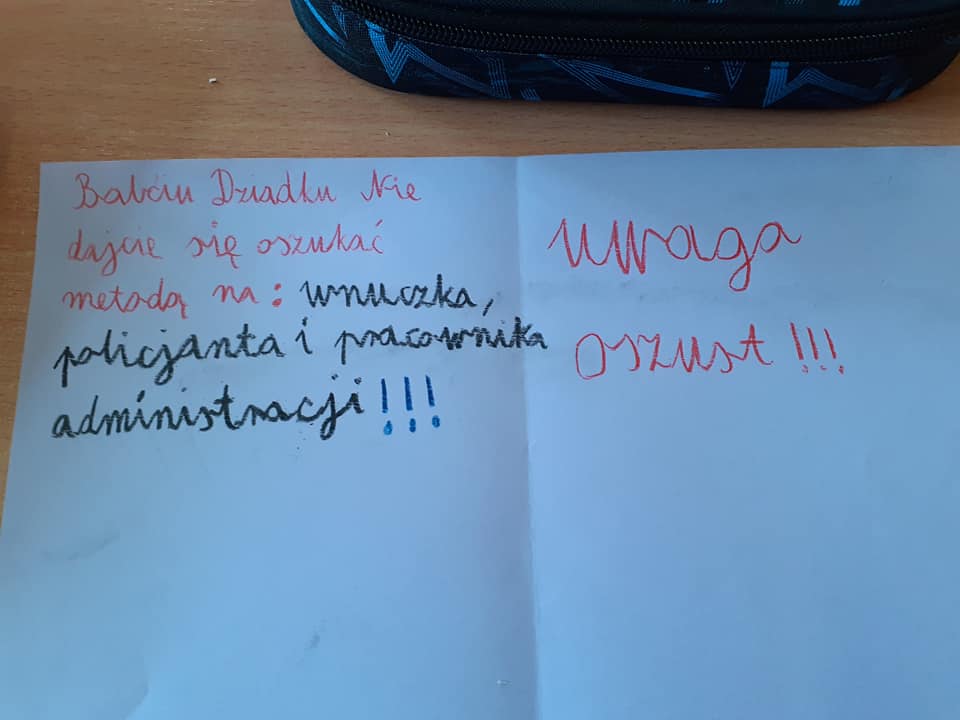 Babciu Dziadku Nie
dajcie się oszukać
metodą na: wnuczka,
policjanta i pracownika
administracji!!!
uwaga
oszust!!!